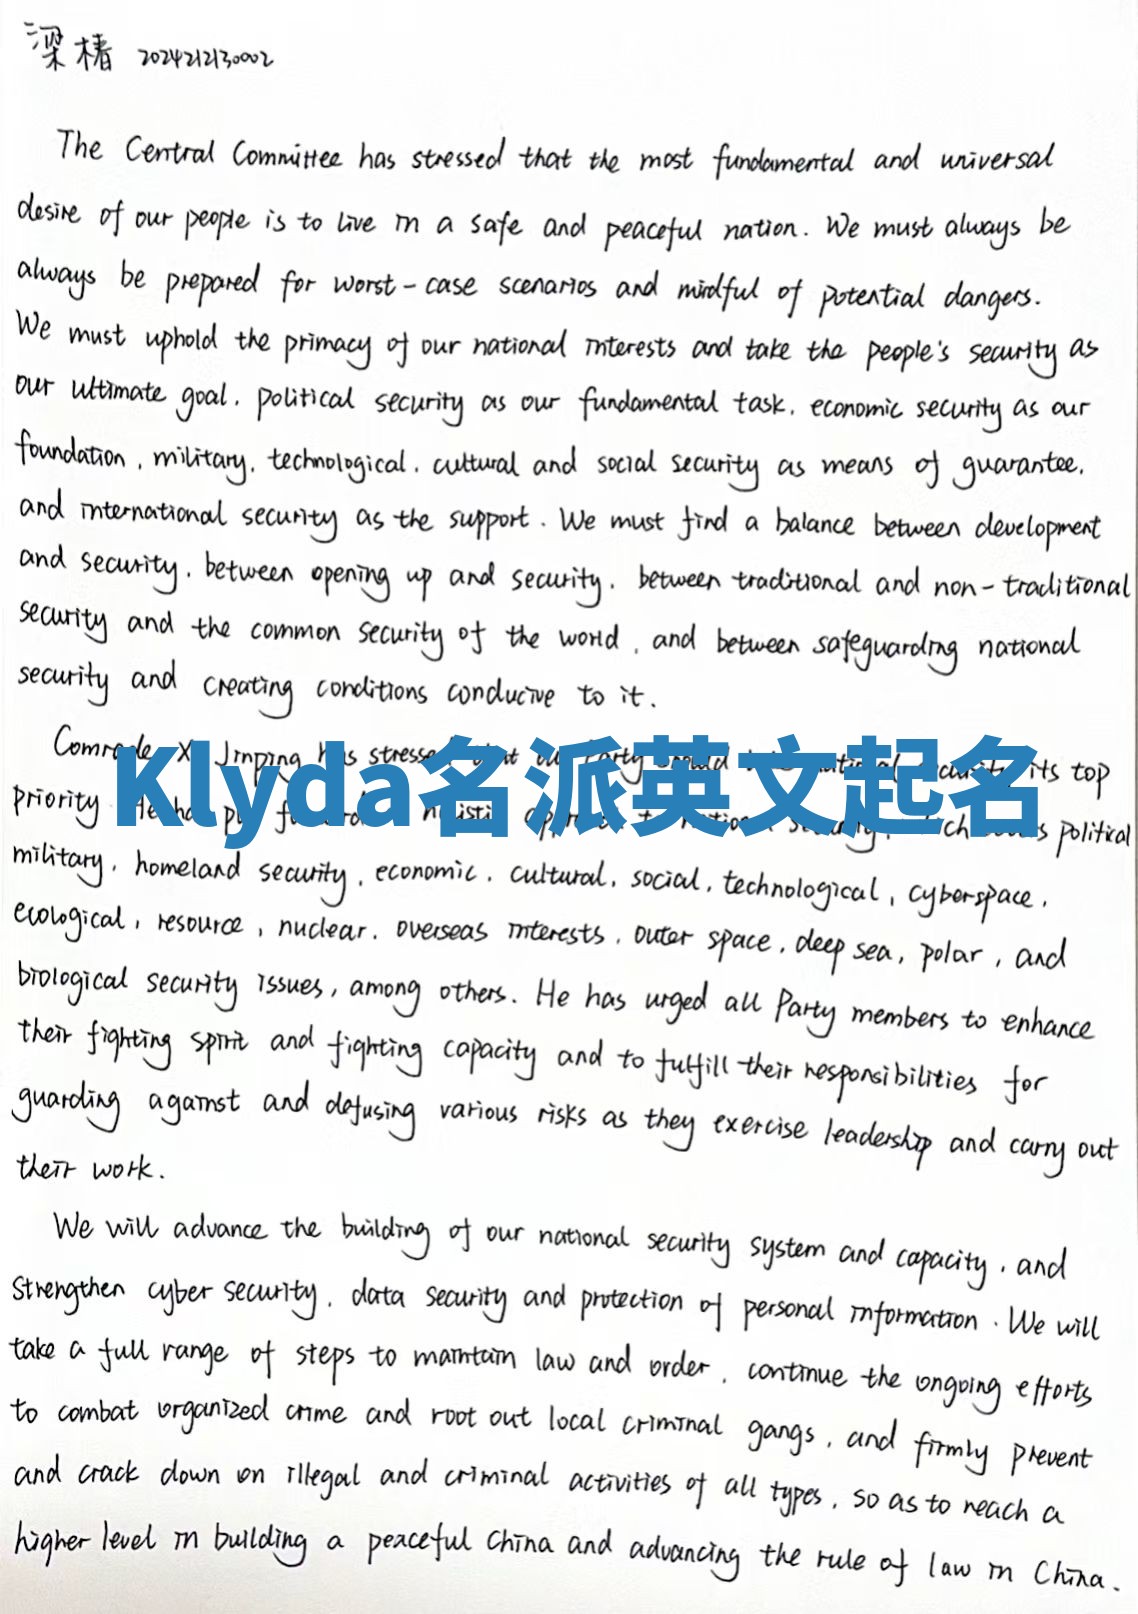 梁椿 2024212130002
The Central Committee has stressed that the most fundamental and universal
desire of our people is to live in a safe and peaceful nation. We must always be
always be prepared for worst-case scenarios and mindful of potential dangers.
We must uphold the primacy of our national interests and take the people's security as
our ultimate goal, political security as our fundamental task, economic security as our
foundation, military, technological, cultural and social security as means of guarantee,
and international security as the support. We must find a balance between development
and security, between opening up and security, between traditional and non-traditional
security and the common security of the world, and between safeguarding national
security and creating conditions conducive to it.
Comrade Xi Jinping has stressed that our Party should national security its top
Klyda名派英文起名
priority political
military, homeland security, economic, cultural, social, technological, cyberspace,
ecological, resource, nuclear, overseas interests, outer space, deep sea, polar, and
biological security issues, among others. He has urged all Party members to enhance
their fighting spirit and fighting capacity and to fulfill their responsibilities for
guarding against and defusing various risks as they exercise leadership and carry out
their work.
We will advance the building of our national security system and capacity, and
strengthen cyber security, data security and protection of personal information. We will
take a full range of steps to maintain law and order, continue the ongoing efforts
to combat organized crime and root out local criminal gangs, and firmly prevent
and crack down on illegal and criminal activities of all types, so as to reach a
higher level in building a peaceful China and advancing the rule of law in China.